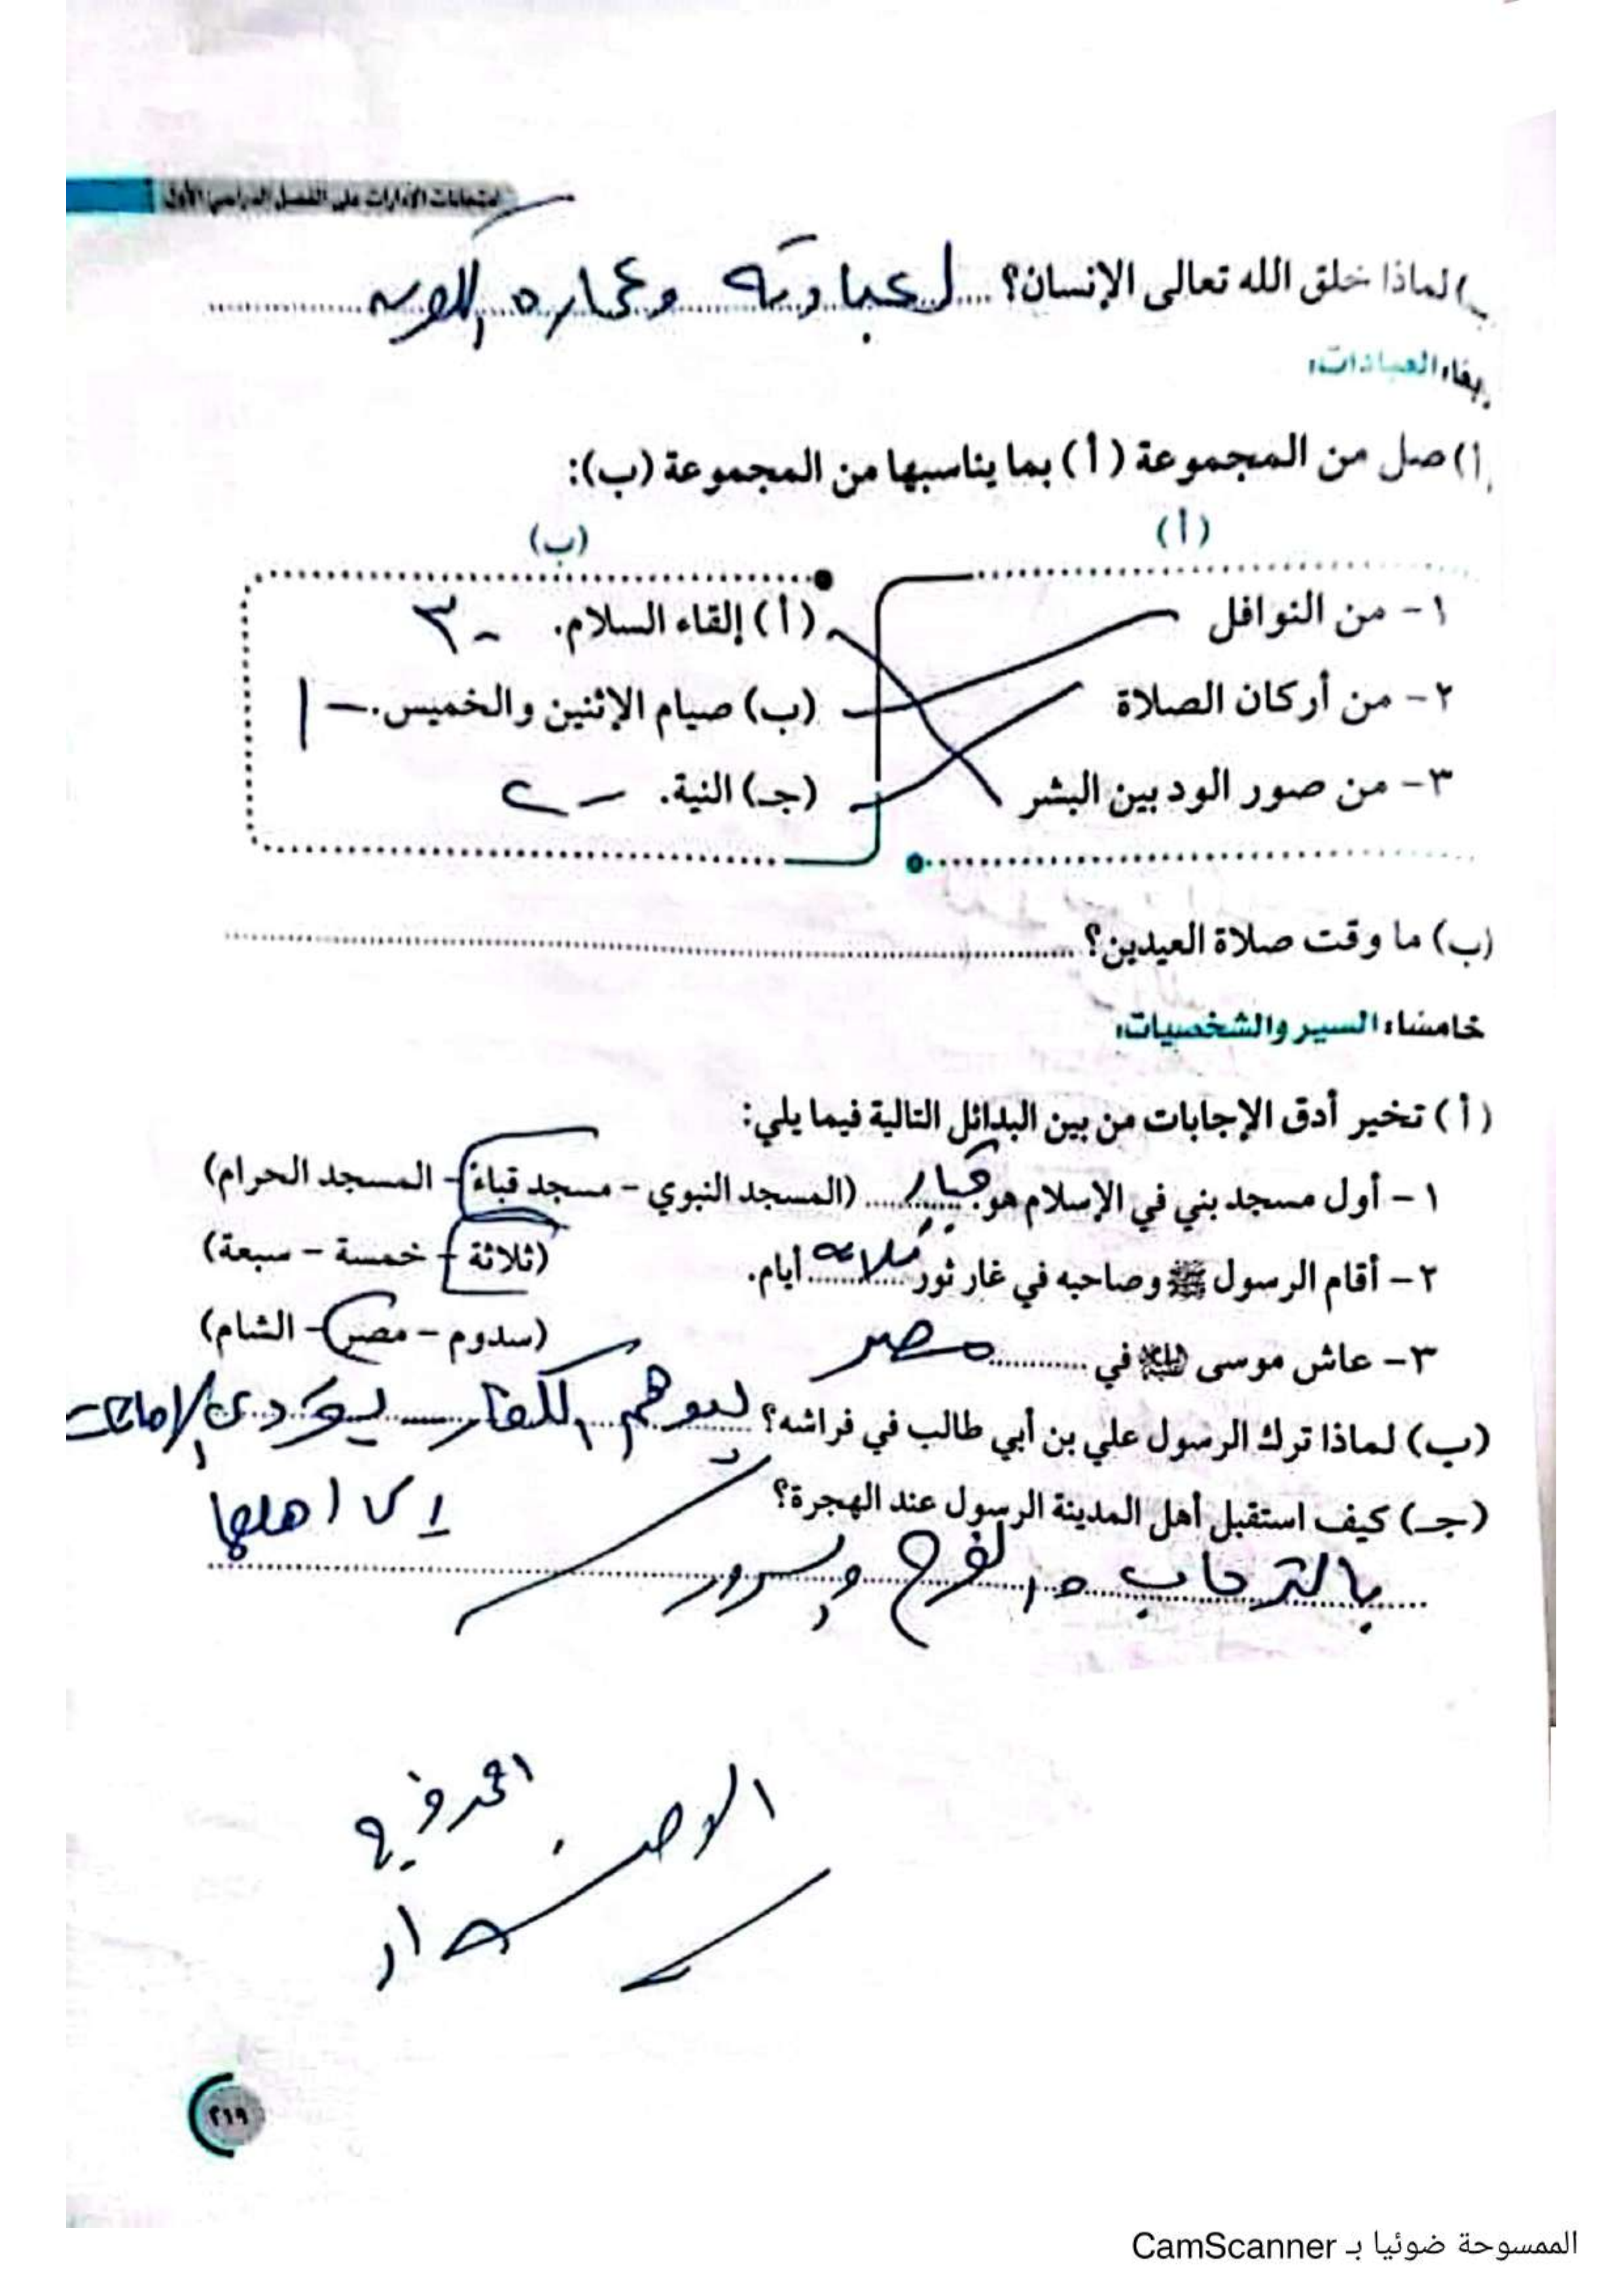 امتحانات الإدارات على الفصل الدراسي الأول
ب) لماذا خلق الله تعالى الإنسان؟ لعبادته وعماره الكون
رابعًا: العبادات:
(أ) صل من المجموعة (أ) بما يناسبها من المجموعة (ب):
(أ) (ب)
١- من النوافل (أ) إلقاء السلام. - ٣
٢- من أركان الصلاة (ب) صيام الإثنين والخميس. - ١
٣- من صور الود بين البشر (جـ) النية. - ٢
(ب) ما وقت صلاة العيدين؟
خامسًا: السير والشخصيات:
(أ) تخير أدق الإجابات من بين البدائل التالية فيما يلي:
١- أول مسجد بني في الإسلام هو قباء (المسجد النبوي - مسجد قباء - المسجد الحرام)
٢- أقام الرسول ﷺ وصاحبه في غار ثور ثلاثه أيام. (ثلاثة - خمسة - سبعة)
٣- عاش موسى عليه السلام في مصر (سدوم - مصر - الشام)
(ب) لماذا ترك الرسول علي بن أبي طالب في فراشه؟ ليوهم الكفار ليؤدي الامانات
الى اهلها
(جـ) كيف استقبل أهل المدينة الرسول عند الهجرة؟
بالترحاب والفرح وسرور
٢١٩
الممسوحة ضوئيا بـ CamScanner